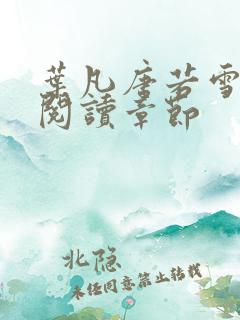 葉凡唐若雪
閱讀章節
北隐
未经同意禁止转载